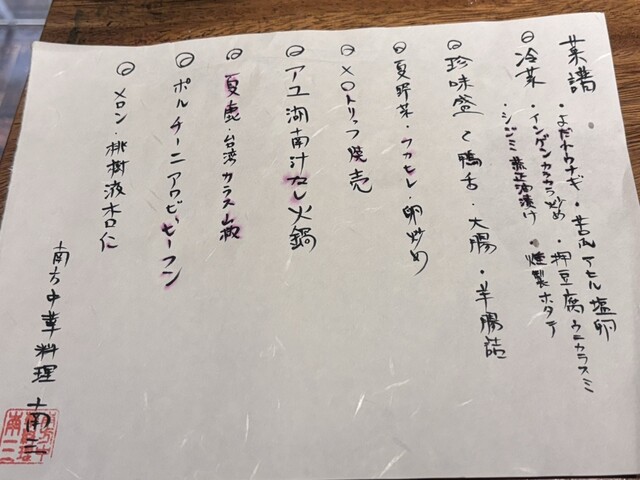 菜譜
・よだれウナギ・苦瓜アヒル塩卵
◎冷菜・インゲンカラカラ炒め・押豆腐ウニカラスミ
・シジミ 醤油漬け・燻製ホタテ
◎珍味盛 (鴨舌・大腸・羊腸詰
◎夏野菜・フカヒレ・卵炒め
◎XOトリュフ焼売
◎アユ湖南汁なし火鍋
◎夏鹿・台湾カラス山椒
◎ポルチーニアワビビーフン
◎メロン・桃樹液杏仁
南方中華料理 南三